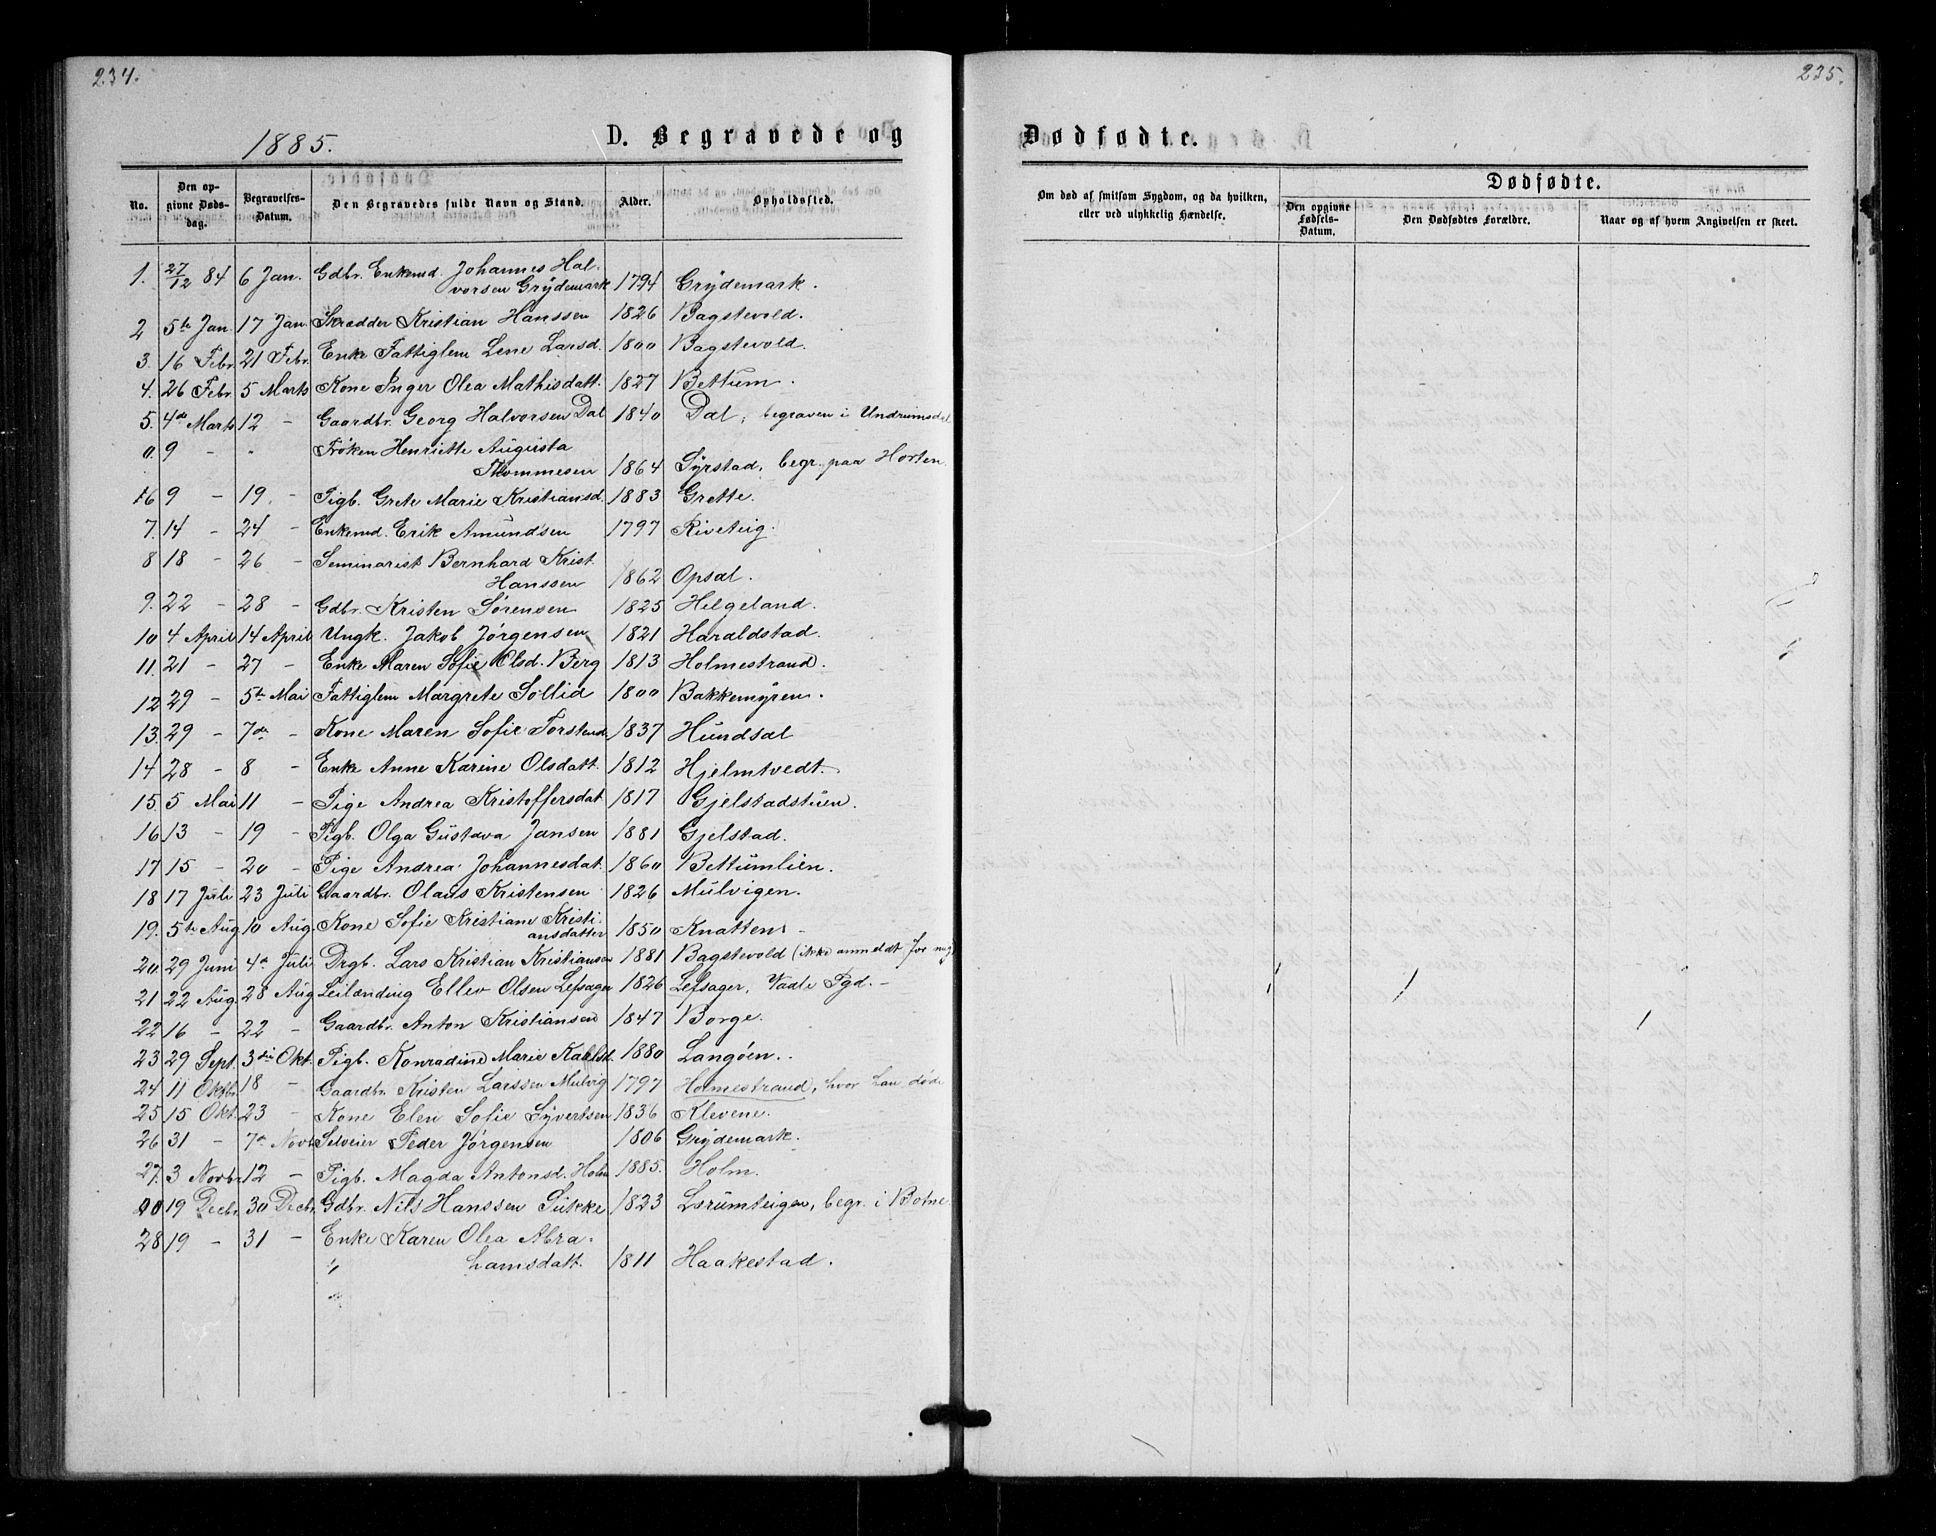 234.
235.
1885.
D. Begravede og
Dødfødte.
No. Den opgivne Dødsdag. Begravelses-Datum. Den Begravedes fulde Navn og Stand. Alder. Opholdssted.
Om død af smitsom Sygdom, og da hvilken, eller ved ulykkelig Hændelse.
Dødfødte.
Den opgivne Fødsels-Datum. Den Dødfødtes Forældre. Naar og af hvem Angivelsen er skeet.
1. 27/12 84 6 Jan. Gdbr. Enkemd. Johannes Hal-
vorsen Grydemark 1794 Grydemark.
2 5te Jan. 17 Jan Skrædder Kristian Hanssen 1826 Bagstevold.
3. 16 Febr. 21 Febr. Enke Fattiglem Lene Larsd. 1800 Bagstevold.
4. 26 Febr. 5 Marts Kone Inger Olea Mathisdatt. 1827 Bettum.
5. 4de Marts 12 - Gaardbr. Georg Halvorsen Dal 1840 Dal, begraven i Undrumsdal
0. 9 - " Frøken Henriette Augusta
Thommesen 1864 Syrstad, begr. paa Horten
6 9 - 19 - Pigb. Grete Marie Kristiansd. 1883 Grette.
7. 14 - 24 - Enkemd. Erik Amundsen 1797 Riveteig.
8 18 - 26 - Seminarist Bernhard Krist.
Hanssen 1862 Opsal.
9. 22 - 28 - Gdbr. Kristen Sørensen 1825 Helgeland.
10 4 April 14 April Ungk. Jakob Jørgensen 1821 Haraldstad.
11. 21 - 27 - Enke Maren Sofie Olsd. Berg 1813 Holmestrand.
12 29 - 5te Mai Fattiglem Margrete Sollid 1800 Bakkemyren.
13. 29 - 7de - Kone Maren Sofie Torstensd. 1837 Hundsal
14 28 - 8 - Enke Anne Karine Olsdatt. 1812 Hjelmtvedt.
15 5 Mai 11 - Pige Andrea Kristoffersdat. 1817 Gjelstadstuen.
16 13 - 19 - Pigb. Olga Gustava Jansen 1881 Gjelstad.
17 15 - 20 - Pige Andrea Johannesdat. 1860 Bettumlien.
18 17 Juli 23 Juli Gaardbr. Olaus Kristensen 1826 Mulvigen.
19. 5te Aug 10 Aug. Kone Sofie Kristiane Kristi-
ansdatter 1850 Knatten -
20 29 Juni 4de Juli Drgb. Lars Kristian Kristiansen 1881 Bagstevold (ikke anmeldt for mig)
21 22 Aug. 28 Aug Leilænding Ellev Olsen Lefsager 1826 Lefsager, Vaale Pgd. -
22 16 - 22 - Gaardbr. Anton Kristiansen 1847 Borge.
23 29 Sept. 3die Okt. Pigb. Konradine Marie Karlsd. 1880 Langøen.
24 11 Oktbr. 18 - Gaardbr. Kristen Larssen Mulvig 1797 Holmestrand, hvor han døde
25 15 Okt. 23 - Kone Elen Sofie Syvertsen 1836 Klevene.
26 31 - 7de Novb. Selveier Peder Jørgensen 1806 Grydemark.
27. 3 Novbr. 12 - Pigb. Magda Antonsd. Holm 1885. Holm.
00 19 Decbr. 30 Decbr. Gdbr. Nils Hanssen Sukke 1823 Lørumteigen, begr. i Botne
28 19 - 31 - Enke Karen Olea Abra-
" hamsdatt. 1811 Haakestad.
"